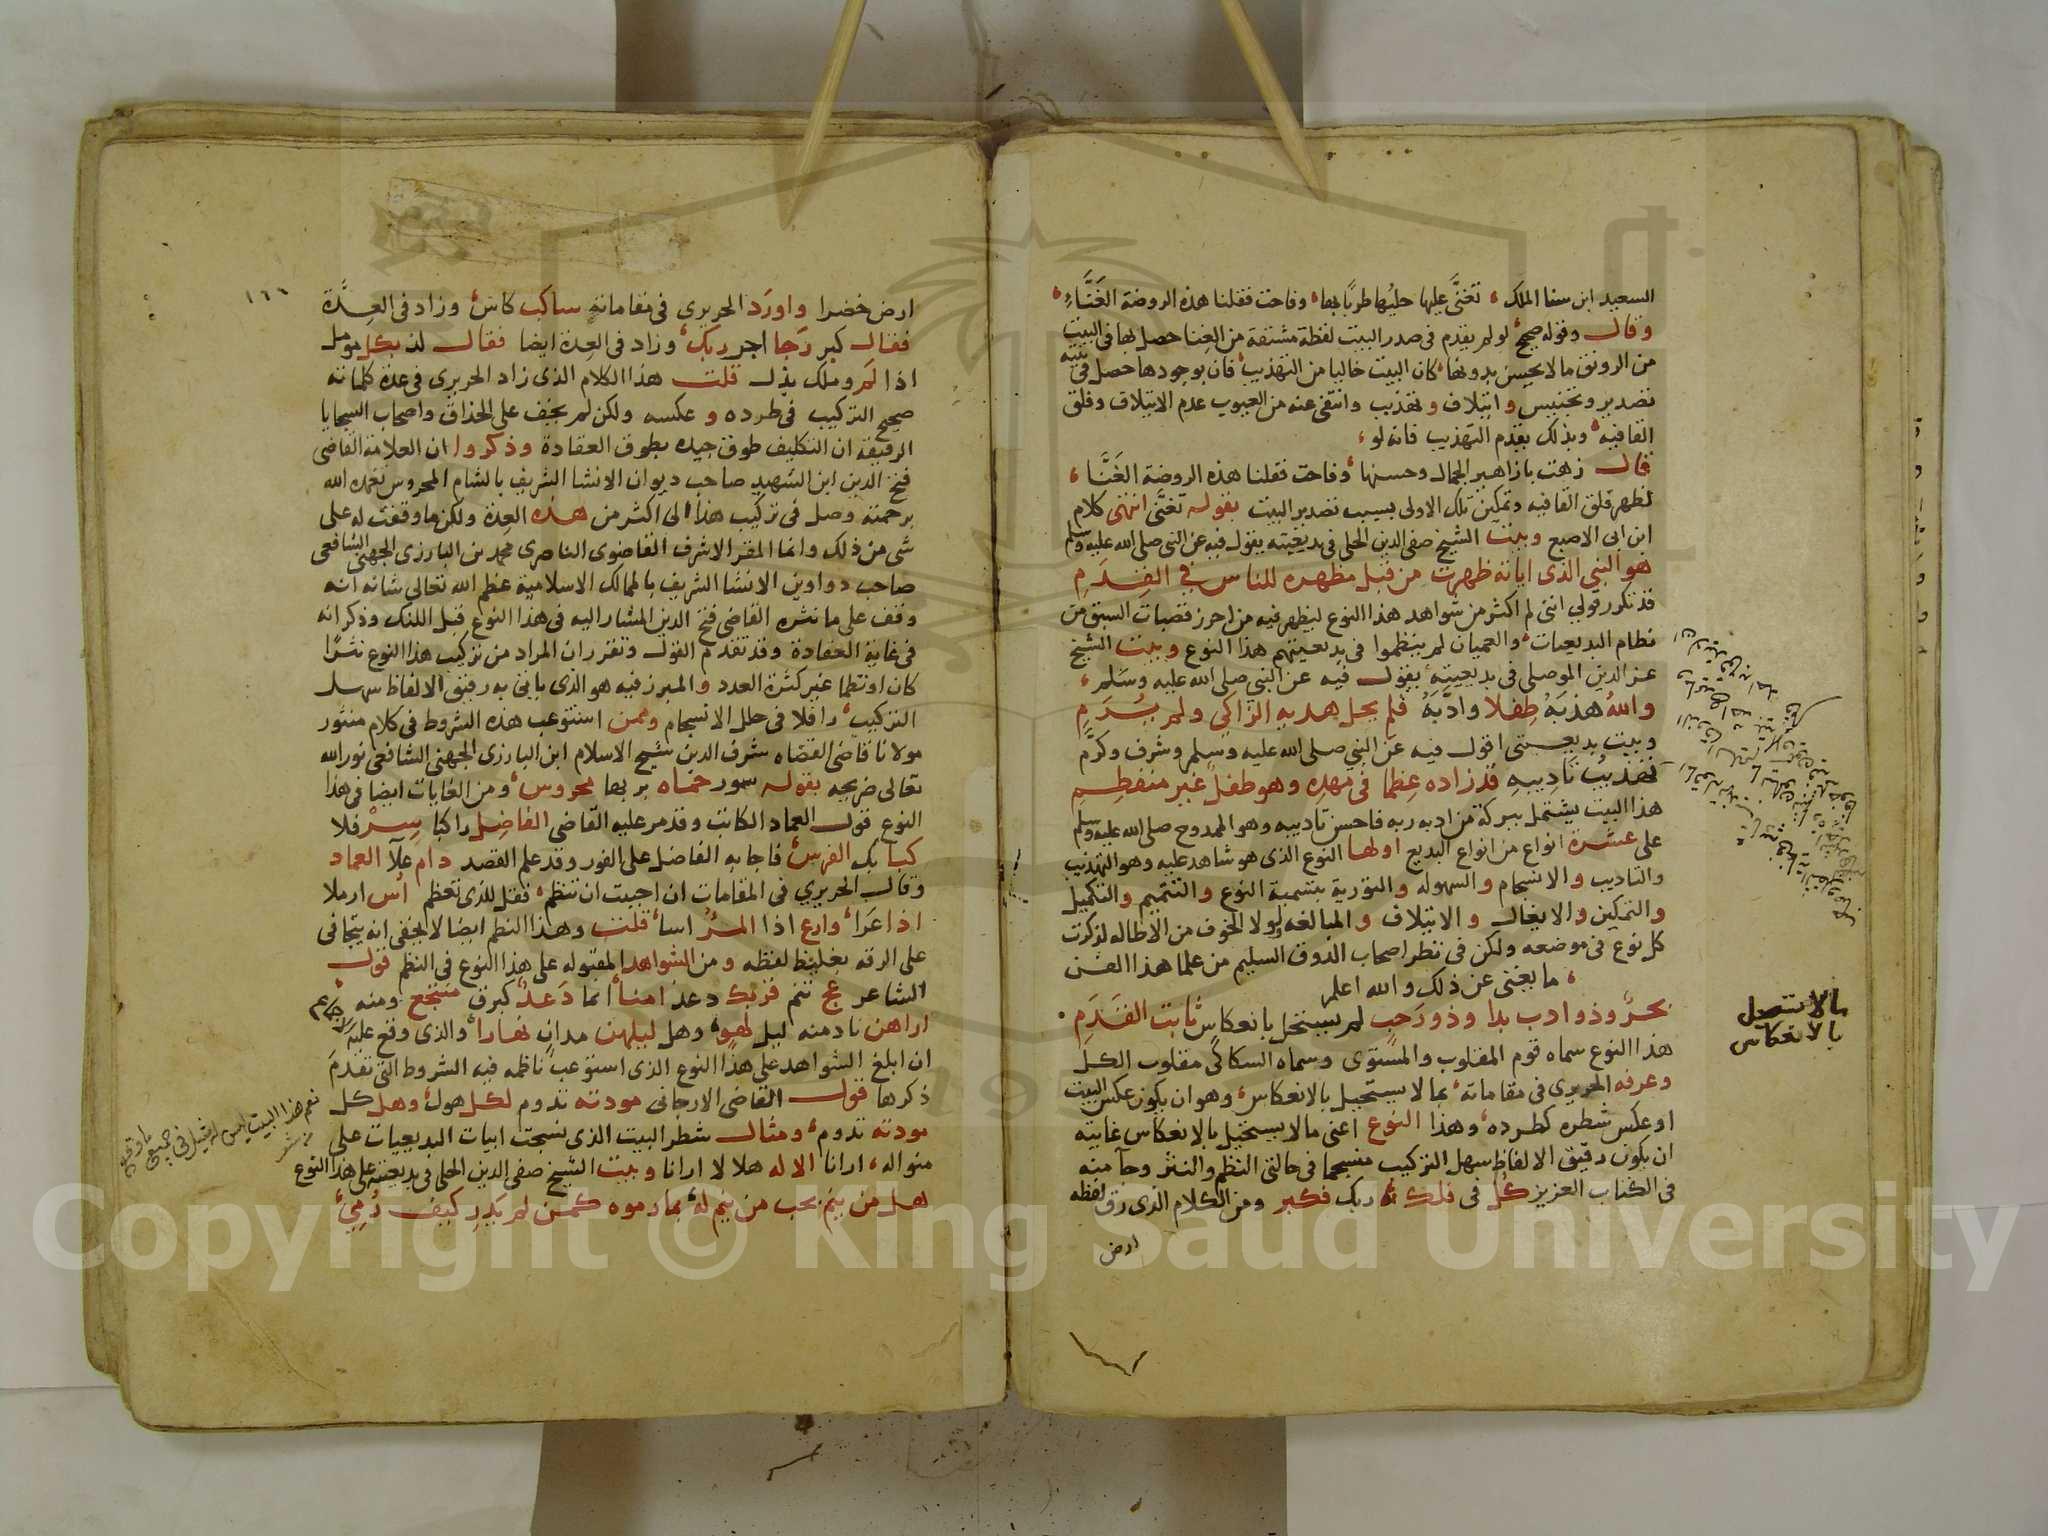 السعيد ابن سنا الملك ، تغنى عليها حليها طربا بها ، وفاحت فقلنا هذه الروضة الغنّاء ،
وقال وقوله صحيح لو لم يقدم في صدر البيت لفظة مشتقة من الغنا حصل بها في البيت
من الرونق ما لا يحسن بدونها ، كان البيت خاليا من التهذيب ، فان بوجودها حصل في بيته
تصدير وتجنيس وايتلاف وتهذيب وانتفى عنه من العيوب عدم الايتلاف وقلق
القافيه ، وبذلك يقدم التهذيب فانه لو ،
قال زهت بازاهير الجمال وحسنها ، وفاحت فقلنا هذه الروضة الغنّا ،
لظهر قلق القافيه وتمكين تلك الاولى بسبب تصدير البيت بقوله تغنى انتهى كلام
ابن ابي الاصبع وبيت الشيخ صفي الدين الحلي في بديعيته يقول فيه عن النبي صلى الله عليه وسلم
هو النبي الذي اياته ظهرت من قبل مظهره للناس في القدم
قد تكرر قولي انني لم اكثر من شواهد هذا النوع ليظهر فيه من احرز قصبات السبق من
نظام البديعيات ، والعميان لم ينظموا في بديعيتهم هذا النوع وبيت الشيخ
عز الدين الموصلي في بديعيته ، يقول فيه عن النبي صلى الله عليه وسلم ،
والله هذبه طفلا وادّبه فلم يحل هديه الزاكي ولم يرم
وبيت بديعيتي اقول فيه عن النبي صلى الله عليه وسلم وشرف وكرم
تهذيب تاديبه قد زاده عظما في مهده وهو طفل غير منفطم
هذا البيت يشتمل ببركة من ادبه ربه فاحسن تاديبه وهو الممدوح صلى الله عليه وسلم
على عشرة انواع من انواع البديع اولها النوع الذي هو شاهد عليه وهو التهذيب
والتاديب والانسجام والسهوله والتورية بتسمية النوع والتتميم والتكميل
والتمكين والايغال والايتلاف والمبالغه ولولا الخوف من الاطاله لذكرت
كل نوع في موضعه ولكن في نظر اصحاب الذوق السليم من علما هذا الفن
، ما يغني عن ذلك والله اعلم
بحر وذو ادب بدا وذو رحب لم يستحل بانعكاس ثابت القدم
هذا النوع سماه قوم المقلوب والمستوى وسماه السكاكي مقلوب الكل
وعرفه الحريري في مقاماته ، بما لا يستحيل بالانعكاس ، وهو ان يكون عكس البيت
او عكس شطره كطرده ، وهذا النوع اعني ما لا يستحيل بالانعكاس غايته
ان يكون رقيق الالفاظ سهل التركيب منسجما في حالتي النظم والنثر وجا منه
في الكتاب العزيز كل في فلك ربك فكبر ومن الكلام الذي رق لفظه
ارض
ما لا يستحيل
بالانعكاس
١٦٦
ارض خضرا واورد الحريري في مقاماته ساكب كاس ، وزاد في العدّة
فقال كبر رجا اجر ربك ، وزاد في العدة ايضا فقال لذ بكل مومل
اذا لم وملك بذل قلت هذا الكلام الذي زاد الحريري في عدة كلماته
صحيح التركيب في طرده وعكسه ولكن لم يخف على الحذاق واصحاب السجايا
الرقيقه ان التكليف طوق جيده بطوق العقادة وذكروا ان العلامة القاضي
فتح الدين ابن الشهيد صاحب ديوان الانشا الشريف بالشام المحروس تغمده الله
برحمته وصل في تركيب هذا الى اكثر من هذه العدة ولكن ما وقفت له على
شي من ذلك وانما المقر الاشرف القاضوي الناصري محمد بن البارزي الجهني الشافعي
صاحب دواوين الانشا الشريف بالممالك الاسلامية عظم الله تعالى شانه انه
وقف على ما نثره القاضي فتح الدين المشار اليه في هذا النوع قبل اللنك وذكر انه
في غاية العقادة وقد تقدم القول وتقرر ان المراد من تركيب هذا النوع نثرا
كان او نظما غير كثرة العدد والمبرز فيه هو الذي ياتي به رقيق الالفاظ سهل
التركيب ، رافلا في حلل الانسجام وممن استوعب هذه الشروط في كلام منثور
مولانا قاضي القضاه شرف الدين شيخ الاسلام ابن البارزي الجهني الشافعي نور الله
تعالى ضريحه بقوله سور حماه بربها محروس ، ومن الغايات ايضا في هذا
النوع قول العماد الكاتب وقد مر عليه القاضي الفاضل راكبا سر فلا
كبا بك الفرس ، فاجابه الفاضل على الفور وقد علم القصد دام علا العماد
وقال الحريري في المقامات ان احببت ان تنظم ، فقل للذي تعظم اس ارملا
اذا عرا ، وارع اذا المرء اسا ، قلت وهذا النظم ايضا لا يخفى انه يتجافى
على الرقه بغليظ لفظه ومن الشواهد المقبوله على هذا النوع في النظم قول
الشاعر عج تنم قربك دعد امنا ، انما دعد كبرق منتجع ومنه
اراهن نادمنه ليل لهو ، وهل ليلهن مدان نهارا ، والذي وقع عليه
ان ابلغ الشواهد على هذا النوع الذي استوعب ناظمه فيه الشروط التي تقدم
ذكرها قول القاضي الارجاني مودته تدوم لكل هول ، وهل كل
مودته تدوم ، ومثال شطر البيت الذي نسجت ابيات البديعيات على
منواله ، ارانا الاله هلالا انارا وبيت الشيخ صفي الدين الحلي في بديعيته على هذا النوع
هل من ينم بحب من ينم له ، بما رموه كمن لم يدر كيف رمي ،
نعم هذا البيت ليس له مثيل في جميع